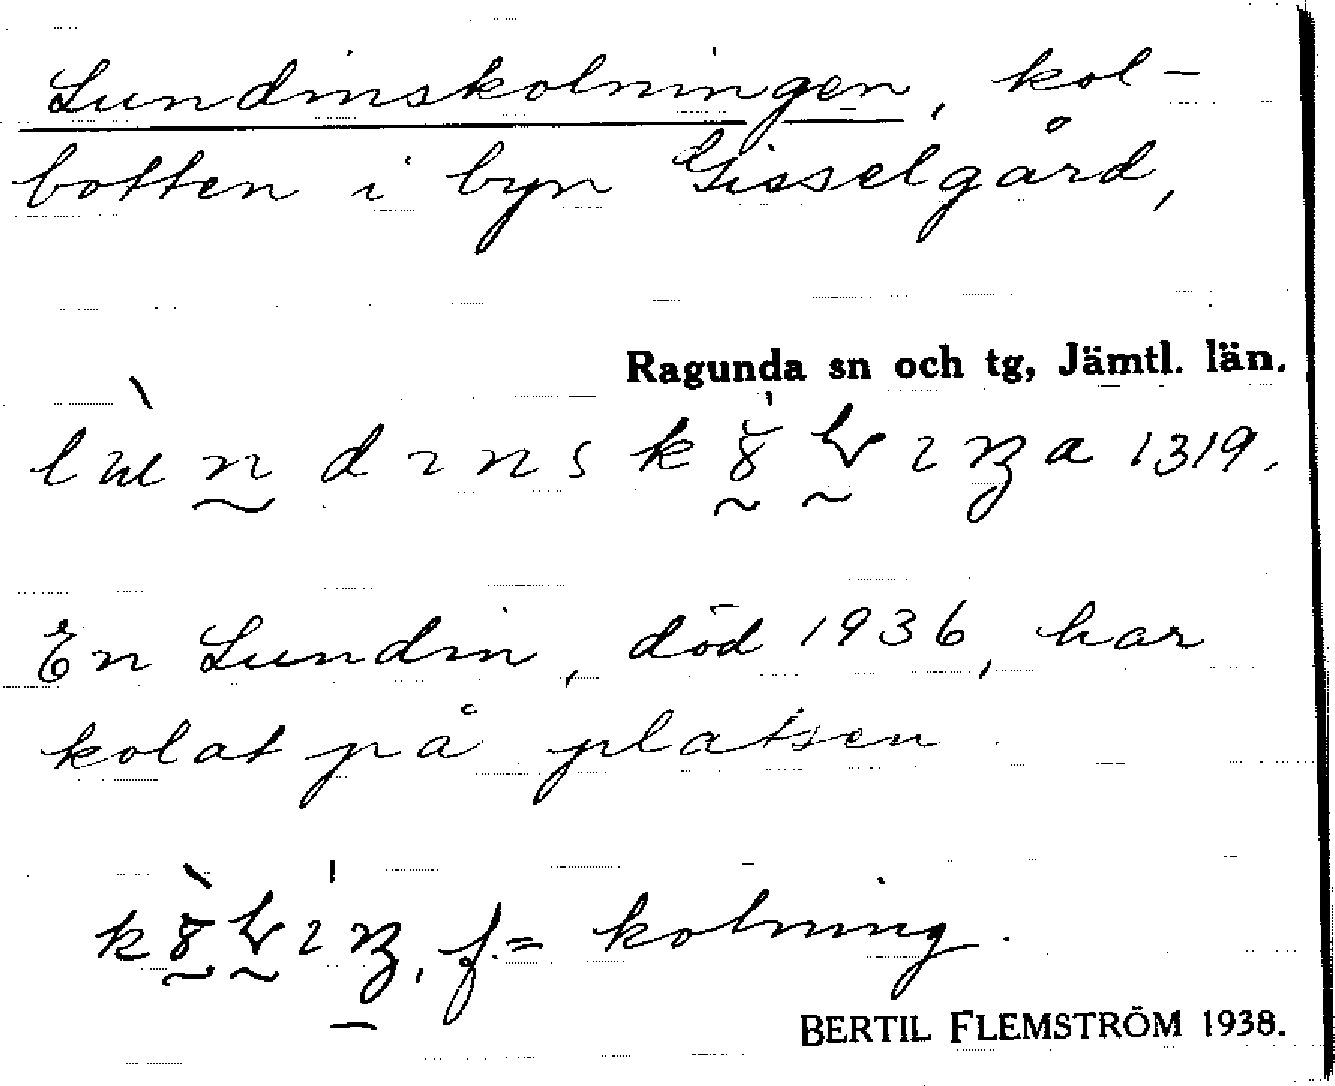 Lundinskolningen, kol-
botten i byn Gisselgård,
Ragunda sn och tg, Jämtl. län.
1319.
En Lundin, död 1936, har
kolat på platsen.
f. = kolning.
BERTIL FLEMSTRÖM 1938.